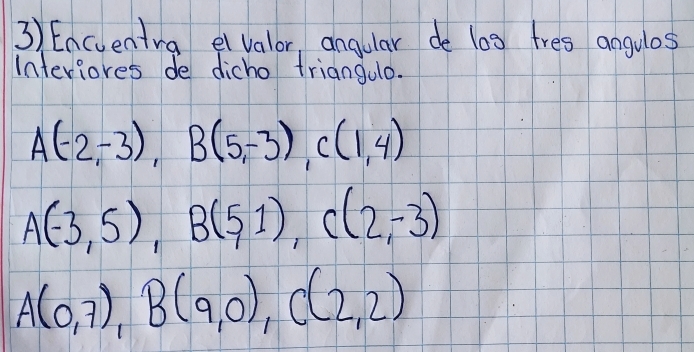 3) Encuentra el valor angular de los tres angulos
interiores de dicho triangulo.
A(-2,-3), B(5,-3), C(1,4)
A(-3,5), B(5,1), C(2,-3)
A(0,7), B(9,0), C(2,2)